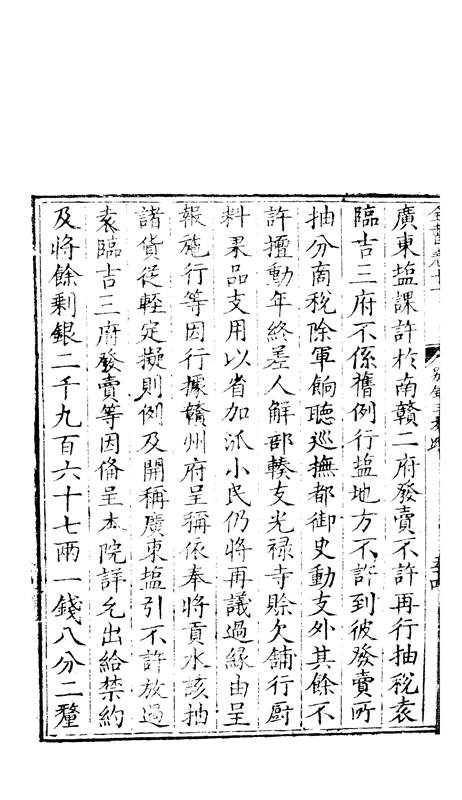 廣東塩課許於南贛二府發賣不許再行抽税袁
臨吉三府不係舊例行塩地方不許到彼發賣所
抽分商税除軍餉聽巡撫都御史動支外其餘不
許擅動年終差人解部輳支光禄寺賒欠舖行厨
料果品支用以省加派小民仍將再議過縁由呈
報施行等因行據贛州府呈稱依奉將貢水該抽
諸貨從輕定擬則例及開稱廣東塩引不許放過
袁臨吉三府發賣等因俻呈本院詳乞出給禁約
及將餘剩銀二千九百六十七兩一錢八分二釐